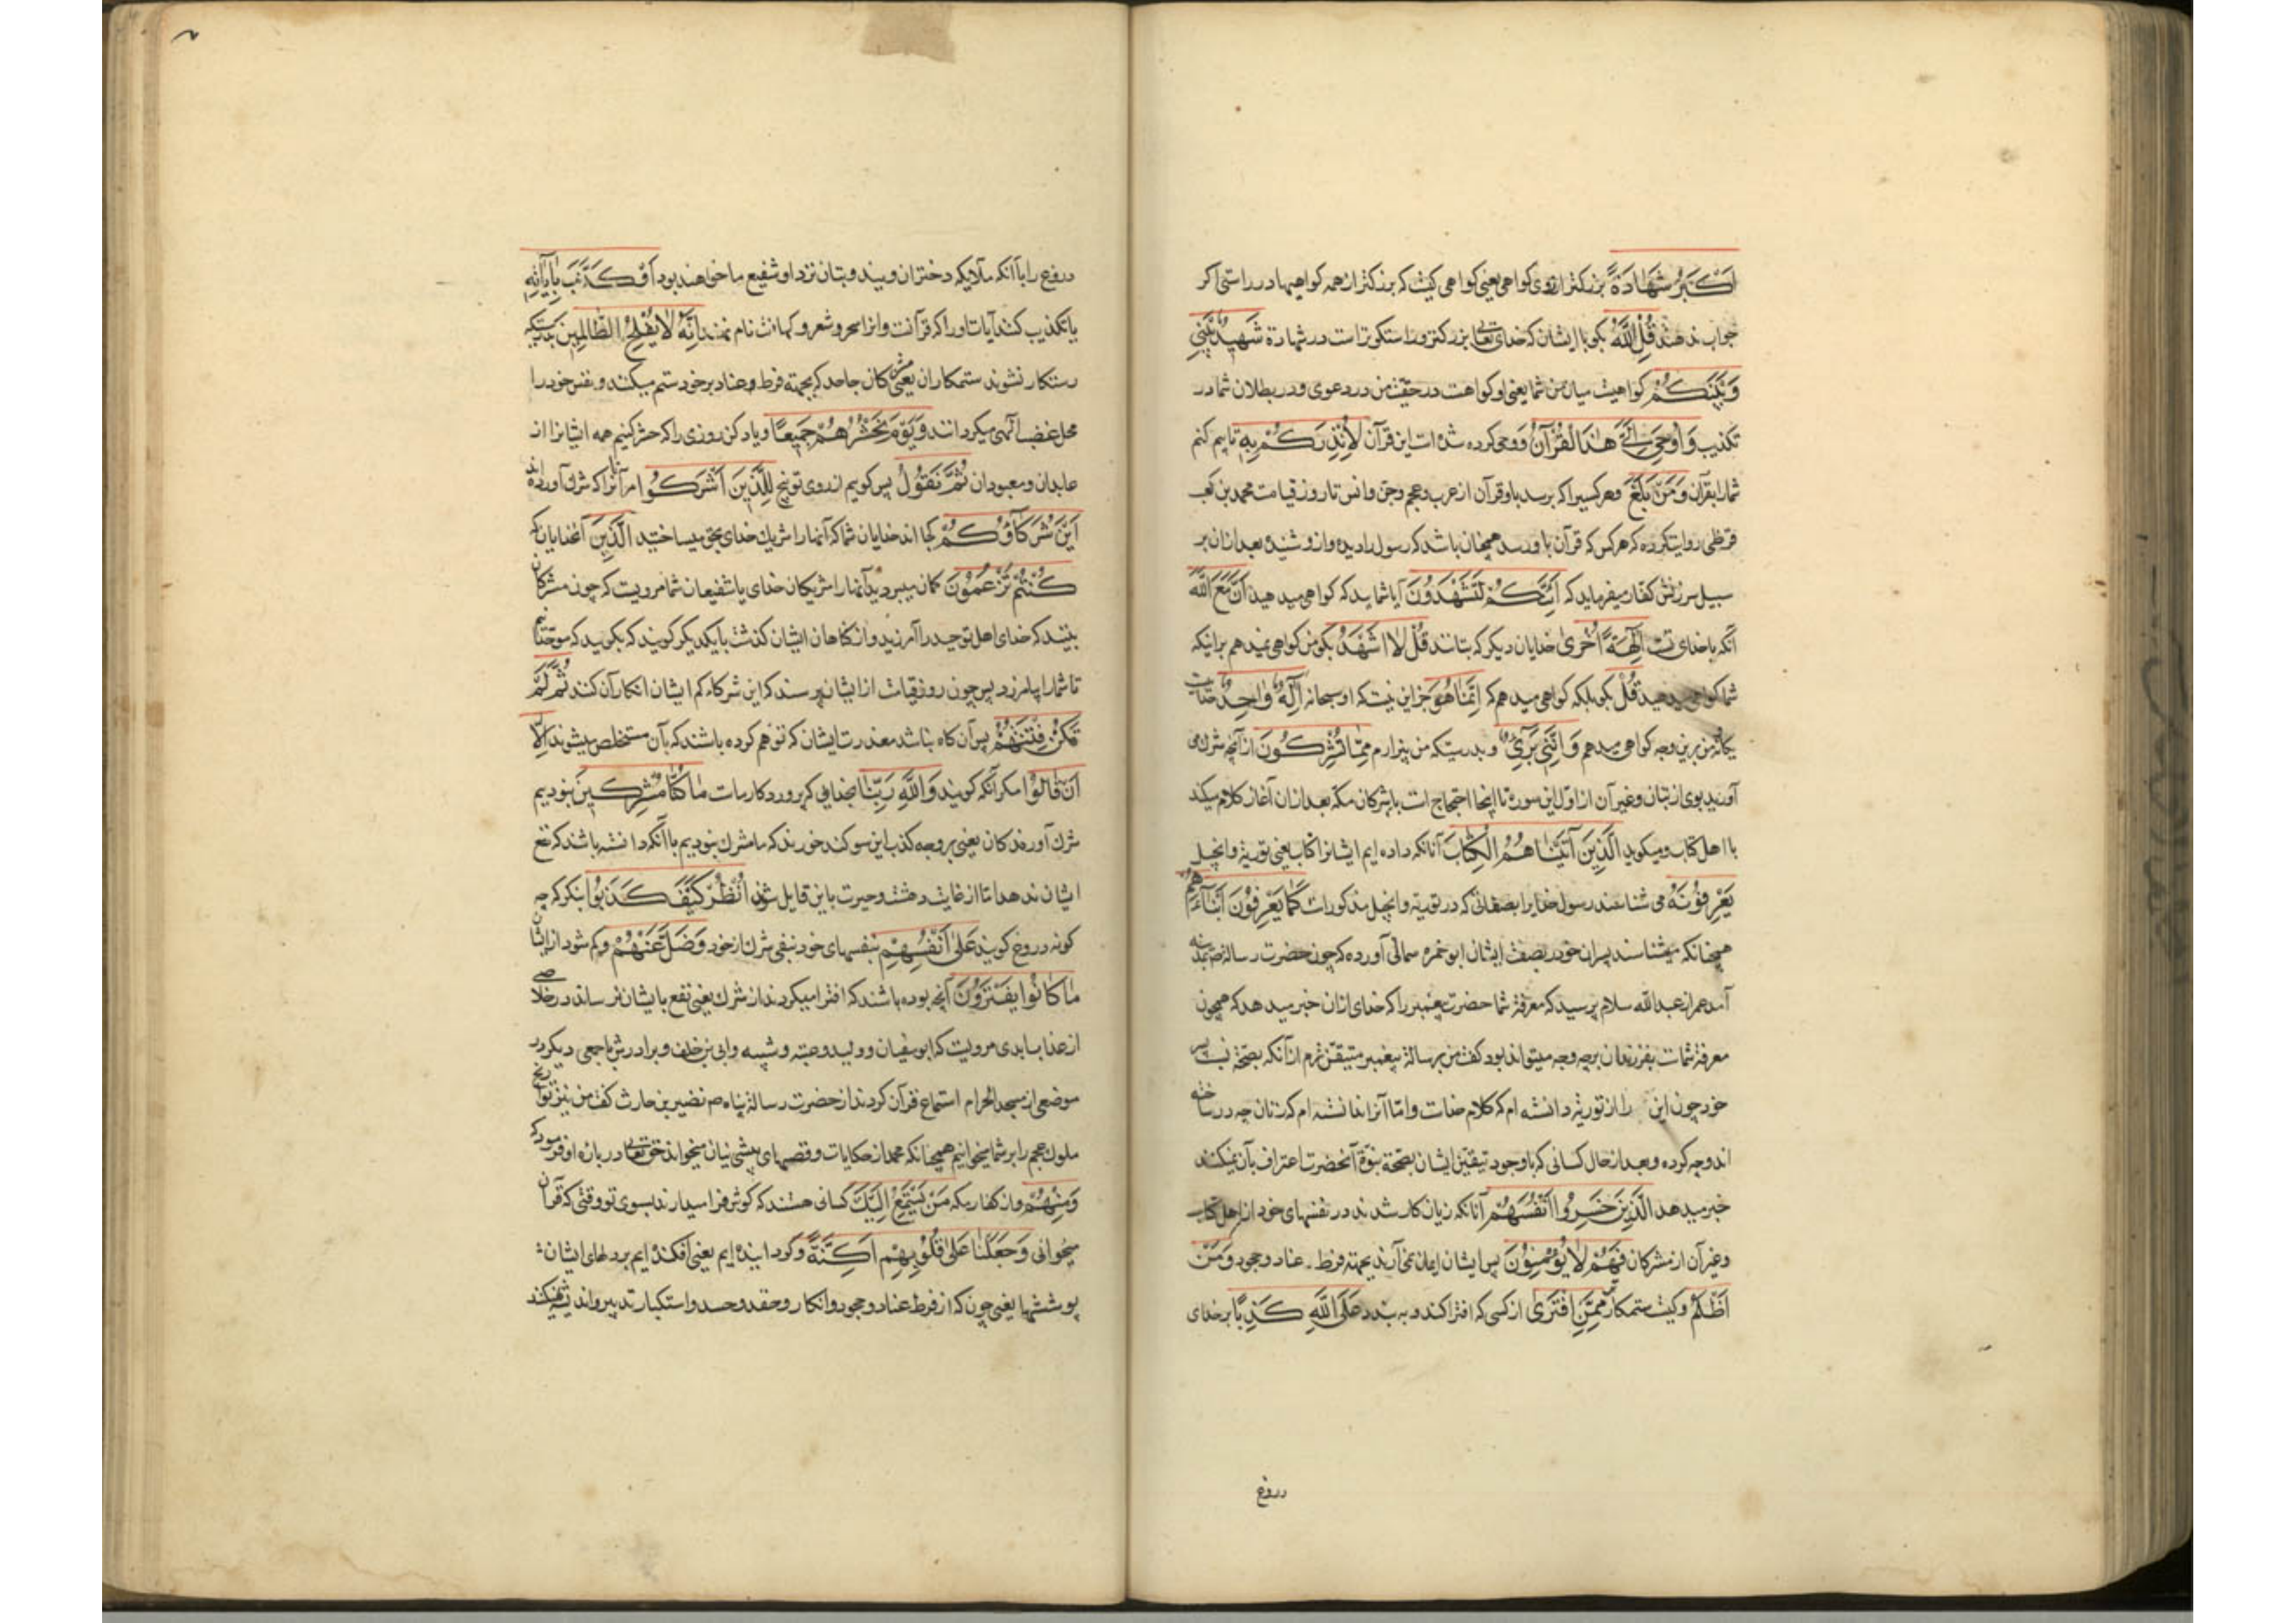 اَكْبَرُ شَهَادَةً بزرکتر از روی کواهی یعنی کواهی کیست که بزرکتر از همه کواهیها در راستی اکر
جواب ندهند قُلِ اللَّهُ بکو با ایشان که خدای تعالی بزرکتر و راستکوتر است در شهادة شَهِيدٌ بَيْنِي
وَبَيْنَكُمْ کواهست میان من و شما یعنی او کواهست در حقیت من در دعوی و در بطلان شما در
تکذیب وَاُوحِيَ اِلَيَّ هٰذَا الْقُرْآنُ و وحی کرده شده است این قرآن لِاُنْذِرَكُمْ بِهِ تا بیم کنم
شما را بقرآن وَمَنْ بَلَغَ و هر کسیرا که برسد باو قرآن از عرب و عجم و جن و انس تا روز قیامت محمد بن کعب
قرظی روایتکرده که هر کس که قرآن باو رسد همچنان باشد که رسول را دیده و از و شنیده بعد از ان بر
سبیل سرزنش کفار میفرماید که اَئِنَّكُمْ لَتَشْهَدُونَ آیا شمایید که کواهی میدهید اَنَّ مَعَ اللَّهِ
آنکه با خدای تست اٰلِهَةً اُخْرىٰ خدایان دیکر که بتانند قُلْ لَا اَشْهَدُ بکو من کواهی نمیدهم برانیکه
شما کواهی میدهید قُلْ بکو بلکه کواهی میدهم که اِنَّمَا هُوَ جز این نیست که او سبحانه اِلٰهٌ وَاحِدٌ خدایست
یکانه من برین وجه کواهی میدهم وَاِنَّنِي بَرِيءٌ و بدرستیکه من بیزارم مِمَّا تُشْرِكُونَ از آنچه شرک می
آورید بوی از بتان و غیر آن از اول این سورة تا اینجا احتجاج است با مشرکان مکه بعد از ان آغاز کلام میکند
با اهل کتاب و میکوید الَّذِينَ آتَيْنَاهُمُ الْكِتَابَ آنانکه داده ایم ایشانرا کتاب یعنی توریة و انجیل
يَعْرِفُونَهُ می شناسند رسول خدایرا بصفاتی که در توریة و انجیل مذکور است كَمَا يَعْرِفُونَ اَبْنَاءَهُمْ
همچنانکه میشناسند پسران خود را بصفت ایشان ابو حمزه ثمالی آورده که چون حضرت رسالة ص بمدینه
آمد عمر از عبدالله سلام پرسید که معرفة شما حضرت پیغمبر را که خدای ازان خبر میدهد که همچون
معرفة شماست بفرزندان بر چه وجه میتواند بود کفت من برسالة پیغمبر متیقن ترم از آنکه بصحة نسب پسر
خود چون این را از توریة دانسته ام که کلام خداست و اما آنرا ندانسته ام که زنان چه در ساخته
اند و چه کرده و بعد از حال کسانی که با وجود تیقن ایشان بصحة نبوة آنحضرت اعتراف بآن نمیکنند
خبر میدهد الَّذِينَ خَسِرُوا اَنْفُسَهُمْ آنانکه زیان کار شدند در نفسهای خود از اهل کتاب
و غیر آن از مشرکان فَهُمْ لَا يُؤْمِنُونَ پس ایشان ایمان نمی آرند بجهته فرط عناد و جحود وَمَنْ
اَظْلَمُ و کیست ستمکارتر مِمَّنِ افْتَرىٰ از کسی که افترا کند و به بندد عَلَى اللَّهِ كَذِبًا بر خدای
دروغ
دروغ را با آنکه ملایکه دختران ویند و بتان نزد او شفیع ما خواهند بود اَوْ كَذَّبَ بِآيَاتِهِ
یا تکذیب کند آیات او را که قرآنست و انرا سحر و شعر و کهانت نام نهند اِنَّهُ لَا يُفْلِحُ الظَّالِمِينَ بدرستیکه
رستکار نشوند ستمکاران یعنی مشرکان جاحد که بجهته فرط و عناد بر خود ستم میکنند و نفس خود را
محل غضب الهی میکردانند وَيَوْمَ نَحْشُرُهُمْ جَمِيعًا و یاد کن روزی را که حشر کنیم همه ایشانرا از
عابدان و معبودان ثُمَّ نَقُولُ پس کوییم از روی توبیخ لِلَّذِينَ اَشْرَكُوا مر آنانرا که شرک آورده اند
اَيْنَ شُرَكَاؤُكُمْ کجا اند خدایان شما که آنها را شریک خدای بحق میساختید الَّذِينَ آن خدایان که
كُنْتُمْ تَزْعُمُونَ کمان میبردید آنها را شریکان خدای یا شفیعان شما مرویست که چون مشرکان
بینند که خدای اهل توحید را آمرزید و از کناهان ایشان کذشت با یکدیکر کویند که بکویید که موحدانیم
تا شما را بیامرزد پس چون روز قیامت از ایشان پرسند که این شرکاءکم ایشان انکار آن کنند ثُمَّ لَمْ
تَكُنْ فِتْنَتُهُمْ پس آن کاه نباشد معذرت ایشان که توهم کرده باشند که بآن مستخلص میشوند اِلَّا
اَنْ قَالُوا مکر آنکه کویند وَاللَّهِ رَبِّنَا بخدایی که پروردکار ماست مَا كُنَّا مُشْرِكِينَ نبودیم
شرک آورندکان یعنی بر وجه کذب این سوکند خورند که ما مشرک نبودیم با آنکه دانسته باشند که نفع
ایشان ندهد اما از غایت دهشت و حیرت باین قایل شوند اُنْظُرْ كَيْفَ كَذَبُوا بنکر که چه
کونه دروغ کویند عَلىٰ اَنْفُسِهِمْ بنفسهای خود بنفی شرک از خود وَضَلَّ عَنْهُمْ و کم شود از ایشان
مَا كَانُوا يَفْتَرُونَ آنچه بوده باشند که افترا میکردند از شرک یعنی نفع بایشان نرساند در خلاصی
از عذاب ابدی مرویست که ابو سفیان و ولید و عتبه و شیبه و ابی بن خلف و برادرش با جمعی دیکر در
موضعی از مسجد الحرام استماع قرآن کردند از حضرت رسالة پناه ص نضیر بن حارث کفت من نیز تواریخ
ملوک عجم را بر شما میخوانیم همچنانکه محمد از حکایات و قصهای پیشینیان میخواند حق تعالی در باره او فرمود که
وَمِنْهُمْ و از کفار مکه مَنْ يَسْتَمِعُ اِلَيْكَ کسانی هستند که کوش فرا میدارند بسوی تو وقتی که قرآن
میخوانی وَجَعَلْنَا عَلىٰ قُلُوبِهِمْ اَكِنَّةً و کردانیده ایم یعنی افکنده ایم بر دلهای ایشان
پوششها یعنی چون که از فرط عناد و جحود و انکار و حقد و حسد و استکبار تدبیر و اندیشه نمیکنند